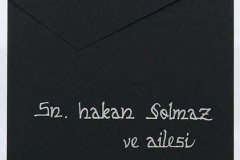 Sn. hakan Solmaz
ve ailesi